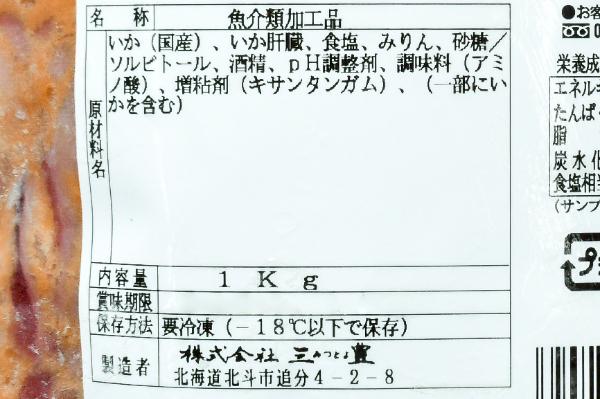 名称 魚介類加工品
原材料名
いか（国産）、いか肝臓、食塩、みりん、砂糖／
ソルビトール、酒精、ｐＨ調整剤、調味料（アミ
ノ酸）、増粘剤（キサンタンガム）、（一部にい
かを含む）
内容量 １Ｋｇ
賞味期限
保存方法 要冷凍（－１８℃以下で保存）
製造者 株式会社 三みつとよ豊
北海道北斗市追分４－２－８
●お客
栄養成
エネルギ
たんぱく
脂
炭水化
食塩相当
（サンプ
プラ